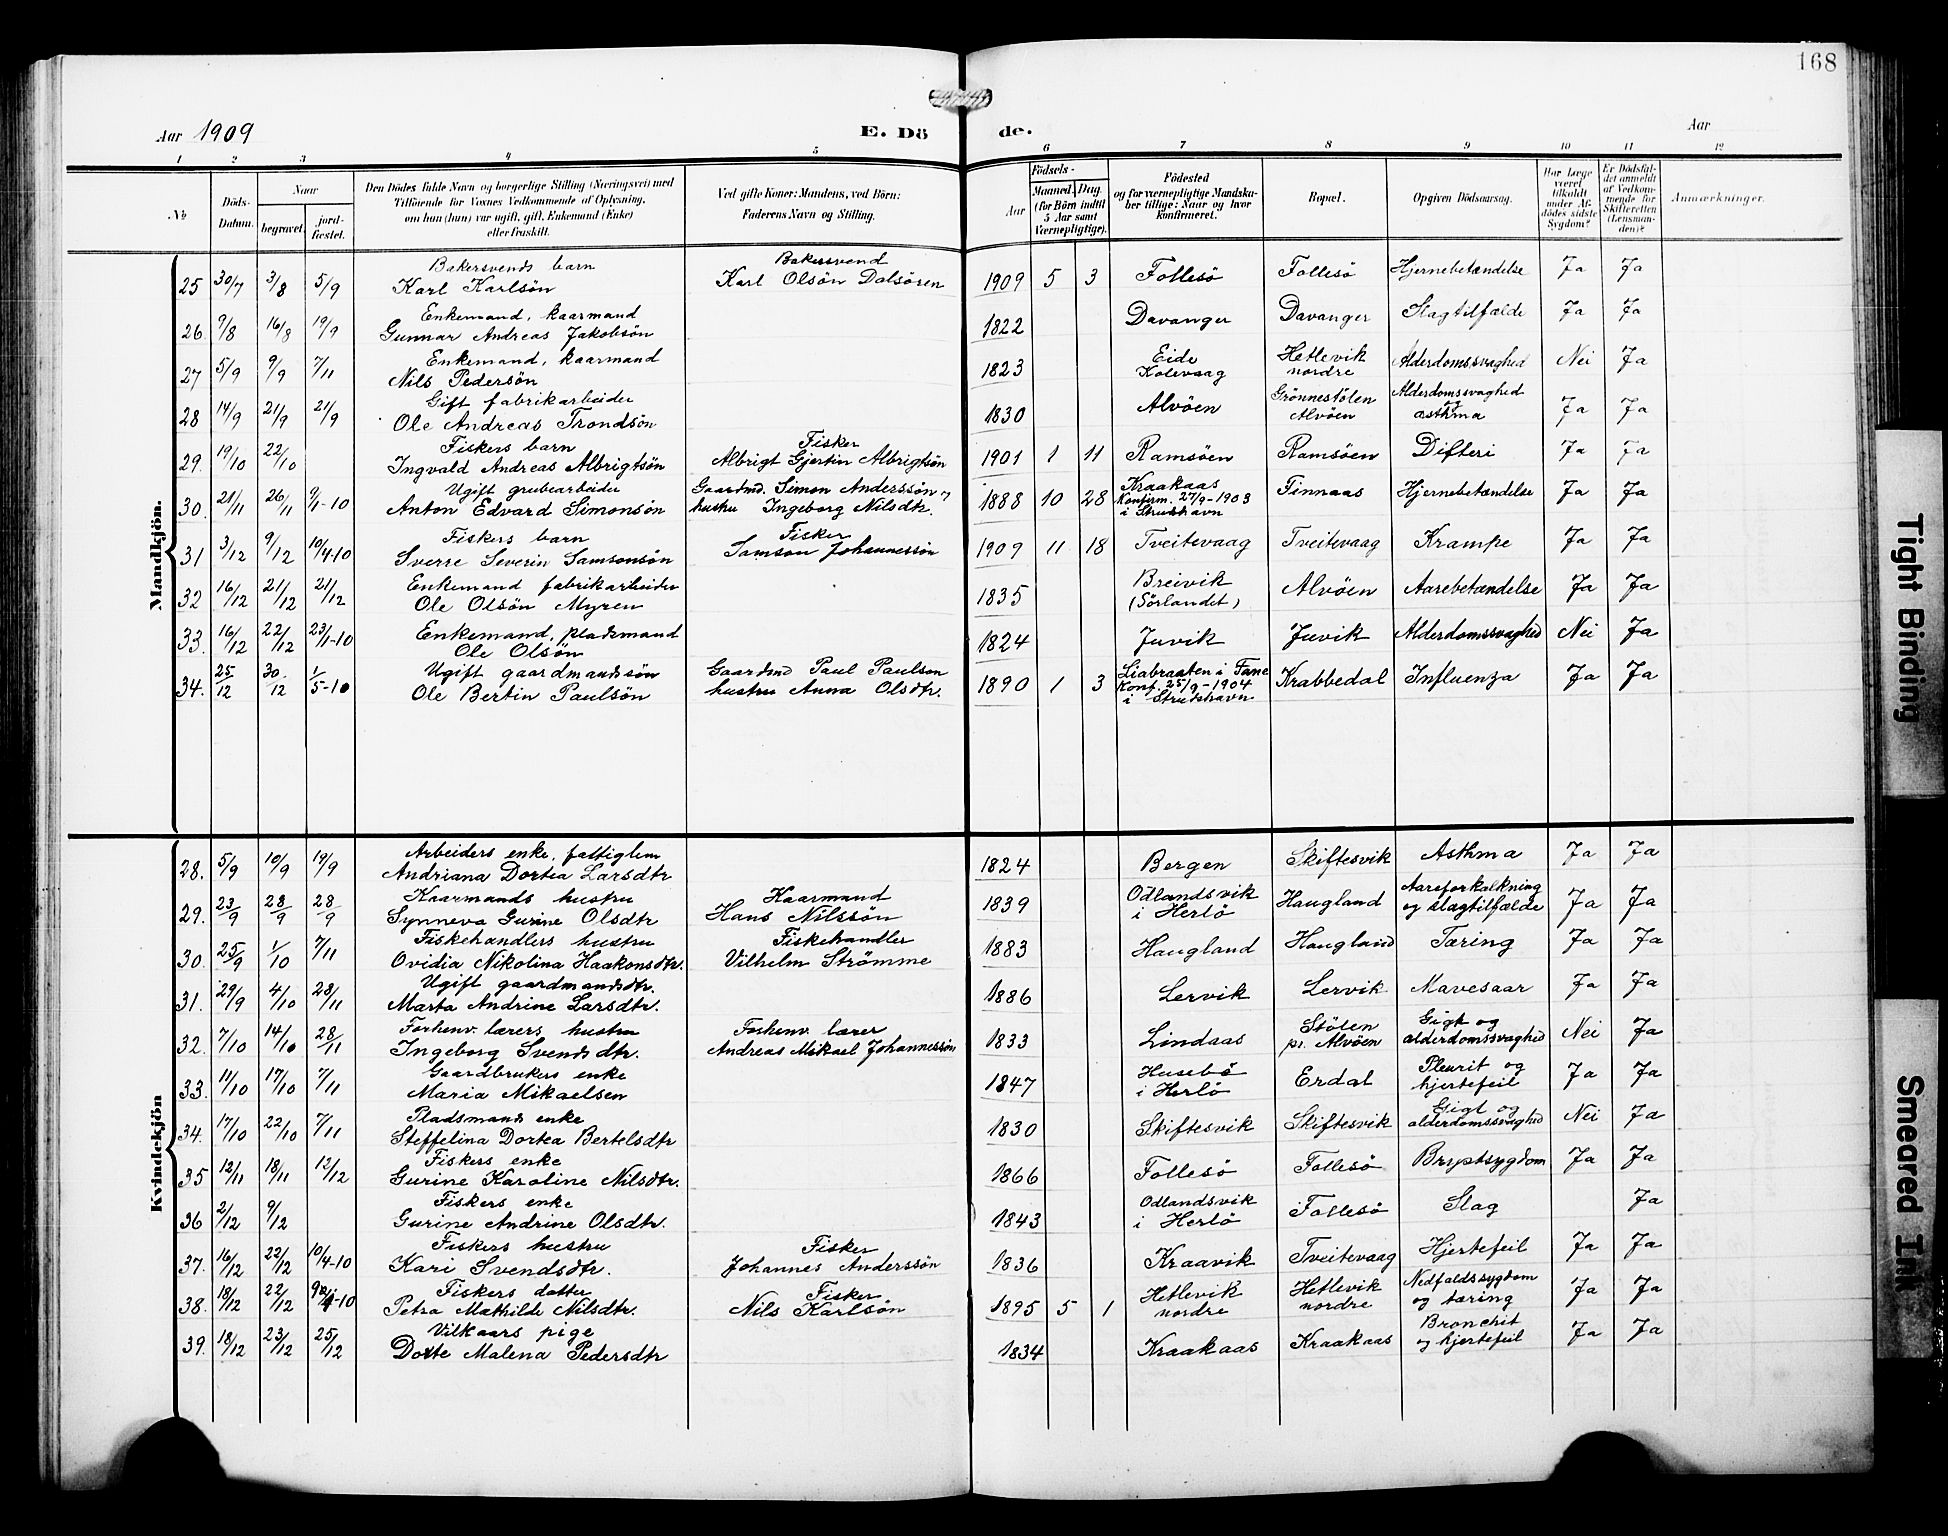 168
Aar 1909 E. Dö de. Aar
1 2 3 4 5 6 7 8 9 10 11 12
No
Döds-Datum.
Naar
begravet.
jord-fæstet.
Den Dödes fulde Navn og borgerlige Stilling (Næringsvei) med
Tilföiende for Voxnes Vedkommende af Oplysning,
om han (hun) var ugift, gift, Enkemand (Enke)
eller fraskilt.
Ved gifte Koner: Mandens, ved Börn:
Faderens Navn og Stilling.
Födsels-
Aar
Maaned. Dag.
(for Börn indtil
5 Aar samt
Værnepligtige).
Födested
og for værnepligtige Mandska-
ber tillige: Naar og hvor
konfirmeret.
Bopæl.
Opgiven Dödsaarsag.
Har Læge
været
tilkaldt
under Af-
dödes sidste
Sygdom?
Er Dödsfal-
det anmeldt
af Vedkom-
mende for
Skifteretten
(Lensman-
den)?
Anmærkninger.
Mandkjön.
Bakersvends barn Bakersvend
25 30/7 3/8 5/9 Karl Karlsön Karl Olsön Dalsören 1909 5 3 Follesö Follesö Hjernebetændelse Ja Ja
Enkemand, kaarmand
26. 9/8 16/8 19/9 Gunnar Andreas Jakobsön 1822 Davanger Davanger Slagtilfælde Ja Ja
Enkemand, kaarmand Eide Hetlevik
27 5/9 9/9 7/11 Nils Pedersön 1823 Kolevaag nordre Alderdomssvaghed Nei Ja
Gift fabrikarbeider Grönnestölen Alderdomssvaghed
28 14/9 21/9 21/9 Ole Andreas Trondsön 1830 Alvöen Alvöen og asthma Ja Ja
Fiskers barn Fisker
29. 19/10 22/10 Ingvald Andreas Albrigtsön Albrigt Gjertin Albrigtsön 1901 1 11 Ramsöen Ramsöen Difteri Ja Ja
Ugift grubearbeider Gaardmd. Simon Anderssön og Kraakaas
30. 21/11 26/11 9/1-10 Anton Edvard Simonsön hustru Ingeborg Nilsdtr. 1888 10 28 Konfirm. 27/9-1903 Finnaas Hjernebetændelse Ja Ja
i Strudshavn
Fiskers barn Fisker
31 3/12 9/12 10/4-10 Sverre Severin Samsonsön Samson Johannessön 1909 11 18 Tveitevaag Tveitevaag Krampe Ja Ja
Enkemand fabrikarbeider Breivik
32 16/12 21/12 21/12 Ole Olsön Myren 1835 (Sörlandet) Alvöen Aarebetændelse Ja Ja
Enkemand, pladsmand
33. 16/12 22/12 23/1-10 Ole Olsön 1824 Juvik Juvik Alderdomssvaghed Nei Ja
Ugift gaardmandssön Gaardmd Paul Paulson Liabraaten i Fane
34. 25/12 30/12 1/5-10 Ole Bertin Paulsön hustru Anna Olsdtr. 1890 1 3 Konf. 25/9-1904 Krabbedal Influenza Ja Ja
i Strudshavn
Kvindekjön
Arbeiders enke, fattiglem
28. 5/9 10/9 19/9 Andriana Dortea Larsdtr 1824 Bergen Skiftesvik Asthma Ja Ja
Kaarmands hustru Kaarmand Odlandsvik Aareforkalkning
29. 23/9 28/9 28/9 Synneva Gurine Olsdtr Hans Nilssön 1839 i Herlö Haugland og slagtilfælde Ja Ja
Fiskehandlers hustru Fiskehandler
30. 25/9 1/10 7/11 Ovidia Nikolina Haakonsdtr. Vilhelm Strömme 1883 Haugland Haugland Tæring Ja Ja
Ugift gaardmandsdtr.
31. 29/9 4/10 28/11 Marta Andrine Larsdtr. 1886 Lervik Lervik Mavesaar Ja Ja
Forhenv. lærers hustru Forhenv. lærer Stölen Gigt og
32. 7/10 14/10 28/11 Ingeborg Svendsdtr. Andreas Mikael Johannessön 1833 Lindaas pr. Alvöen alderdomssvaghed Nei Ja
Gaardbrukers enke Husebö Pleurit og
33. 11/10 17/10 7/11 Maria Mikaelsen 1847 i Herlö Erdal hjertefeil Ja Ja
Pladsmands enke Gigt og
34. 17/10 22/10 7/11 Steffelina Dortea Bertelsdtr 1830 Skiftesvik Skiftesvik alderdomssvaghed Nei Ja
Fiskers enke
35 12/11 18/11 12/12 Gurine Karoline Nilsdtr. 1866 Follesö Follesö Brystsygdom Ja Ja
Fiskers enke Odlandsvik
36 2/12 9/12 Gurine Andrine Olsdtr. 1843 i Herlö Follesö Slag Ja
Fiskers hustru Fisker
37. 16/12 22/12 10/4-10 Kari Svendsdtr. Johannes Anderssön 1836 Kraavik Tveitevaag Hjertefeil Ja Ja
Fiskers datter Fisker Hetlevik Hetlevik Nedfaldssygdom
38. 18/12 22/12 Petra Mathilde Nilsdtr. Nils Karlsön 1895 5 1 nordre nordre og tæring Ja Ja
Vilkaars pige Bronchit
39. 18/12 23/12 25/12 Dorte Malena Pedersdtr 1834 Kraakaas Kraakaas og hjertefeil Ja Ja
Tight Binding
Smeared Ink